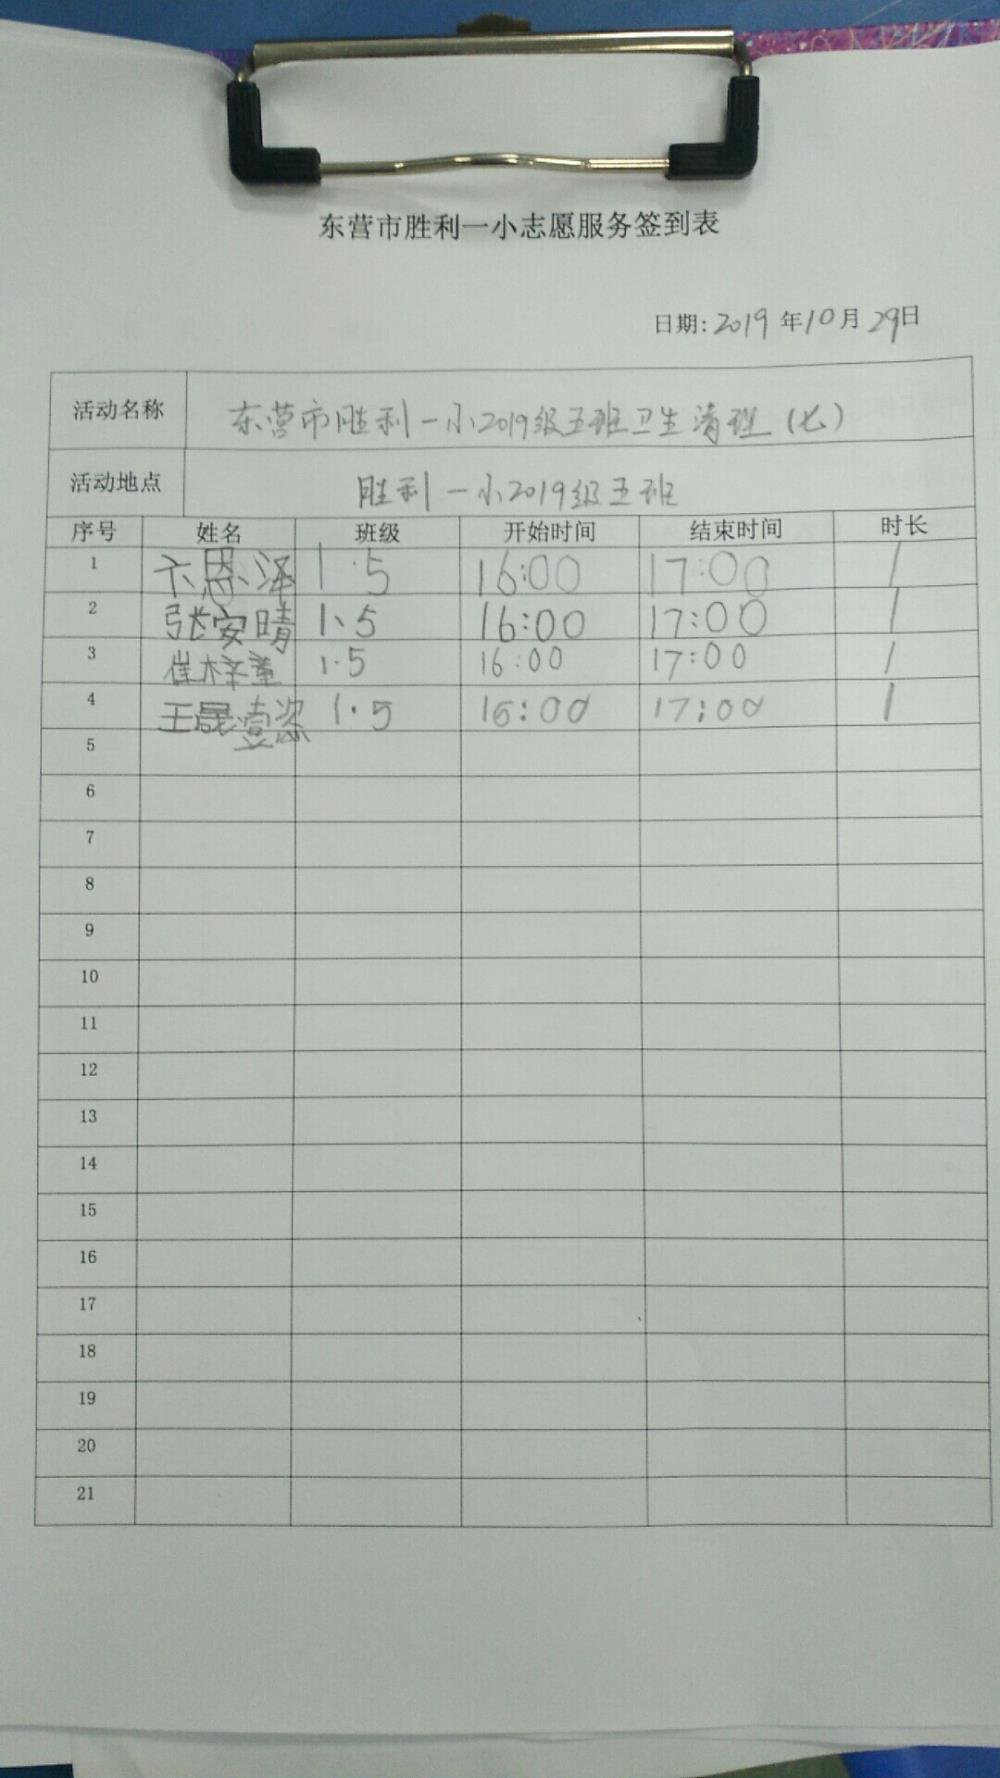 东营市胜利一小志愿服务签到表
日期:2019年10月29日
活动名称 东营市胜利一小2019级五班卫生清理(七)
活动地点 胜利一小2019级五班
序号 姓名 班级 开始时间 结束时间 时长
1 恩泽 1·5 16:00 17:00 1
2 张安晴 1、5 16:00 17:00 1
3 崔梓萱 1·5 16:00 17:00 1
4 王晟壹 1·5 16:00 17:00 1
5
6
7
8
9
10
11
12
13
14
15
16
17
18
19
20
21